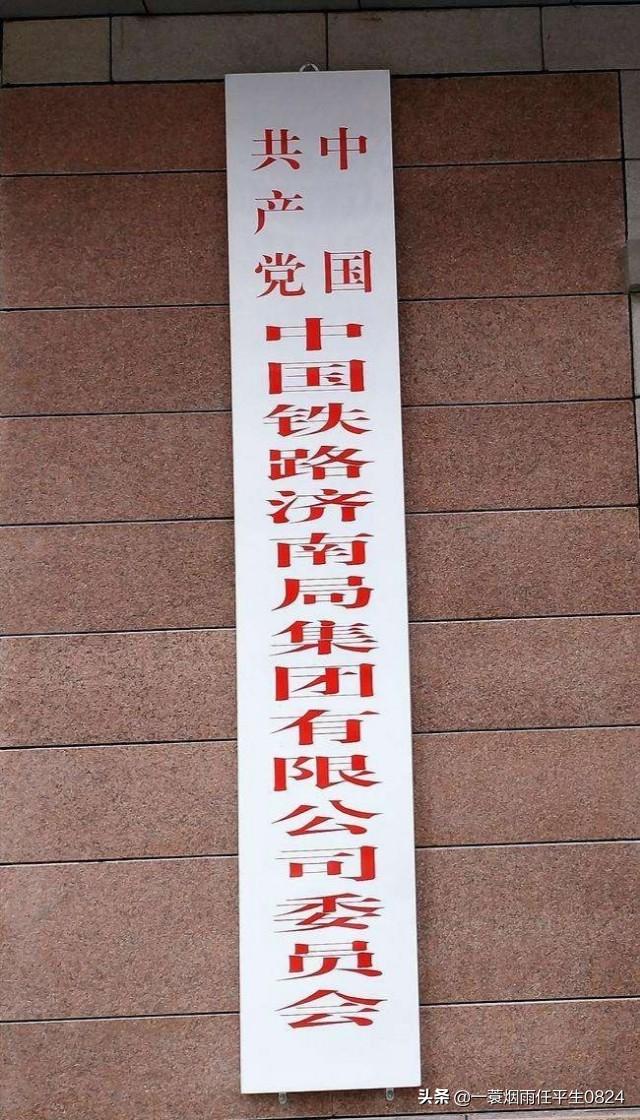 中国
共产党
中国铁路济南局集团有限公司委员会
头条 @一蓑烟雨任平生0824